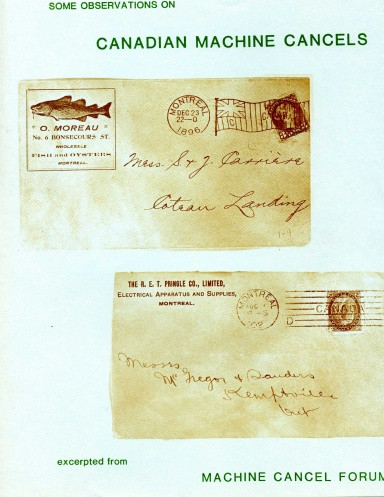 SOME OBSERVATIONS ON
CANADIAN MACHINE CANCELS
O. MOREAU
No. 6 BONSECOURS ST.
WHOLESALE
FISH and OYSTERS
MONTREAL.
MONTREAL
DEC 23
22-0
1896
Mess. S & J. Carrière
Coteau Landing
THE R. E. T. PRINGLE CO., LIMITED,
ELECTRICAL APPARATUS AND SUPPLIES,
MONTREAL.
MONTREAL
D
CANADA
Messrs
McGregor & Sanders
Kemptville
Ont
excerpted from
MACHINE CANCEL FORUM